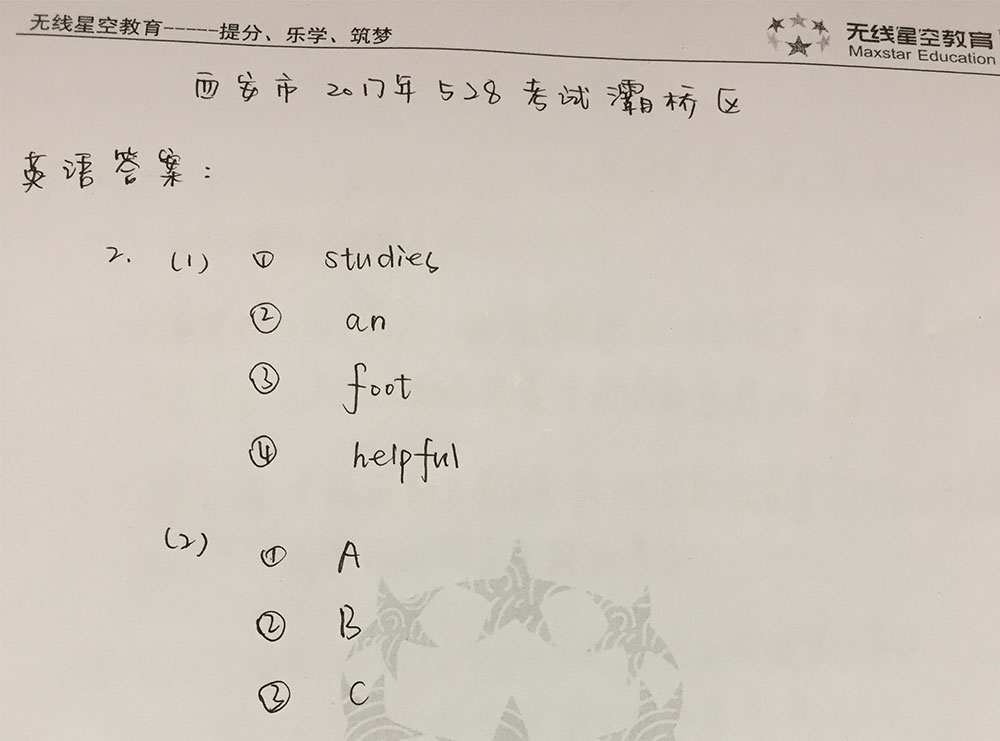 无线星空教育-----提分、乐学、筑梦
无线星空教育
Maxstar Education
西安市 2017年 528 考试灞桥区
英语答案：
2. (1) ① studies
② an
③ foot
④ helpful
(2) ① A
② B
③ C